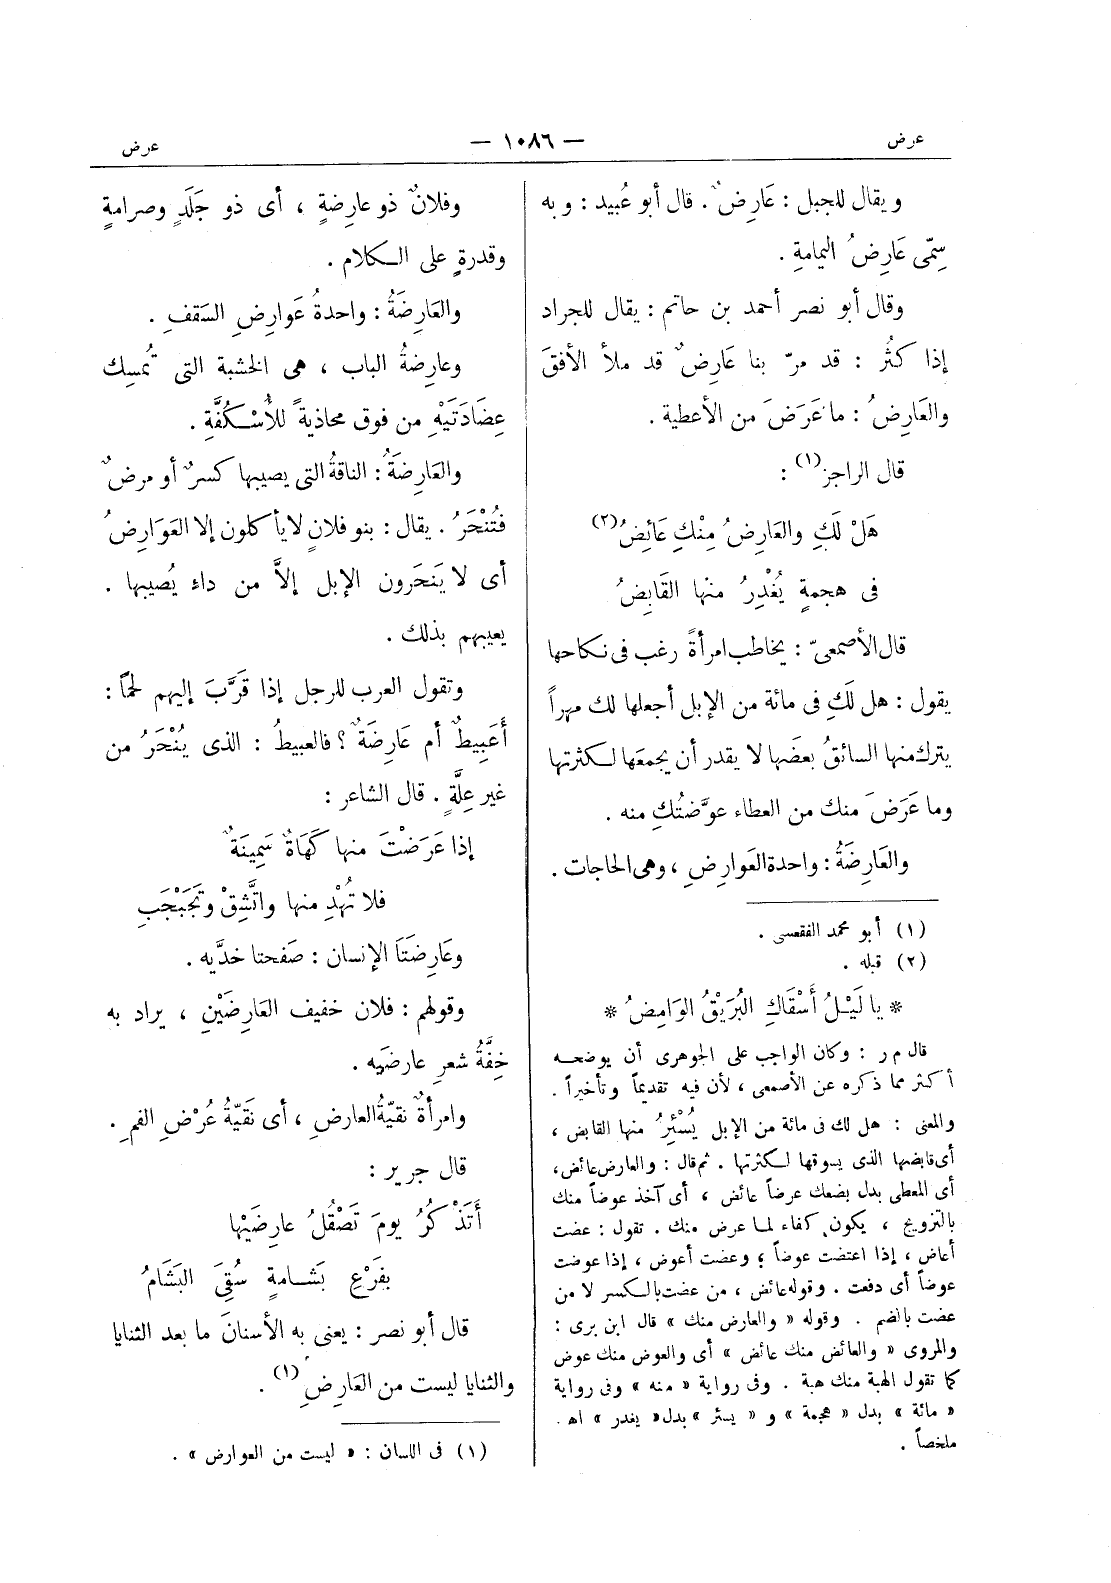 عرض
— ١٠٨٦ —
عرض
ويقال للجبل : عَارِضٌ . قال أبو عُبيد : وبه
سِمّى عَارِضُ اليمامةِ .
وقال أبو نصر أحمد بن حاتم : يقال للجراد
إذا كثُر : قد مرّ بنا عَارِضٌ قد ملأ الأفقَ
والعَارِضُ : ما عَرَضَ من الأعطية .
قال الراجز (١) :
هَلْ لَكِ والعَارِضُ مِنْكِ عَائِضُ (٢)
فى هجمةٍ يُغْدِرُ منها القَابِضُ
قال الأصمعىّ : يخاطب امرأةً رغب فى نكاحها
يقول : هل لَكِ فى مائة من الإبل أجعلها لك مهراً
يترك منها السائقُ بعضَها لا يقدر أن يجمعَها لكثرتها
وما عَرَضَ منك من العطاء عوَّضتُكِ منه .
والعَارِضَةُ : واحدة العَوارِضِ ، وهى الحاجات .
(١) أبو محمد الفقعسى .
(٢) قبله .
* يا لَيْلُ أَسْقَاكِ البُرَيْقُ الوَامِضُ *
قال م ر : وكان الواجب على الجوهرى أن يوضحه
أكثر مما ذكره عن الأصمعى ، لأن فيه تقديماً وتأخيراً .
والمعنى : هل لك فى مائة من الإبل يُسْئِرُ منها القابض ،
أى قابضها الذى يسوقها لكثرتها . ثم قال : والعارض عائض ،
أى المعطى بدل بضعك عرضاً عائض ، أى آخذ عوضاً منك
بالتزويج ، يكون كفاء لما عرض منك . تقول : عضت
أعاض ، إذا اعتضت عوضاً ؛ وعضت أعوض ، إذا عوضت
عوضاً أى دفعت . وقوله عائض ، من عضت بالكسر لا من
عضت بالضم . وقوله « والعارض منك » قال ابن برى :
والمروى « والعائض منك عائض » أى والعوض منك عوض
كما تقول الهبة منك هبة . وفى رواية « منه » وفى رواية
« مائة » بدل « هجمة » و « يسئر » بدل « يغدر » اهـ .
ملخصاً .
وفلانٌ ذو عارِضةٍ ، أى ذو جَلَدٍ وصرامةٍ
وقدرةٍ على الكلام .
والعَارِضَةُ : واحدةُ عَوارِضِ السَقفِ .
وعارِضةُ الباب ، هى الخشبة التى تُمسِك
عِضَادَتَيْهِ من فوق محاذيةً للأُسْكُفَّةِ .
والعَارِضَةُ : الناقةُ التى يصيبها كسرٌ أو مرضٌ
فتُنْحَرُ . يقال : بنو فلانٍ لا يأكلون إلا العَوَارِضُ
أى لا يَنَحَرون الإبل إلاَّ من داء يُصيبها .
يعيبهم بذلك .
وتقول العرب للرجل إذا قَرَّبَ إليهم لحماً :
أَعَبِيطٌ أم عَارِضَةٌ ؟ فالعبيطُ : الذى يُنْحَرُ من
غير عِلَّةٍ . قال الشاعر :
إذا عَرَضَتْ منها كَهَاةٌ سَمِينَةٌ
فلا تُهْدِ منها واتَّشِقْ وتَجَبْجَبِ
وعَارِضَتَا الإنسان : صَفحتا خدَّيه .
وقولهم : فلان خفيف العَارِضَيْنِ ، يراد به
خِفَّةُ شعرِ عارضَيه .
وامرأةٌ نقيّةُ العارِضِ ، أى نَقيّةُ عُرْضِ الفمِ .
قال جرير :
أَتَذْكُرُ يومَ تَصْقُلُ عارِضَيْها
بفَرْعِ بَشَامةٍ سُقِىَ البَشَامُ
قال أبو نصر : يعنى به الأسنانَ ما بعد الثنايا
والثنايا ليست من العَارِضِ (١) .
(١) فى اللسان : « ليست من العوارض » .